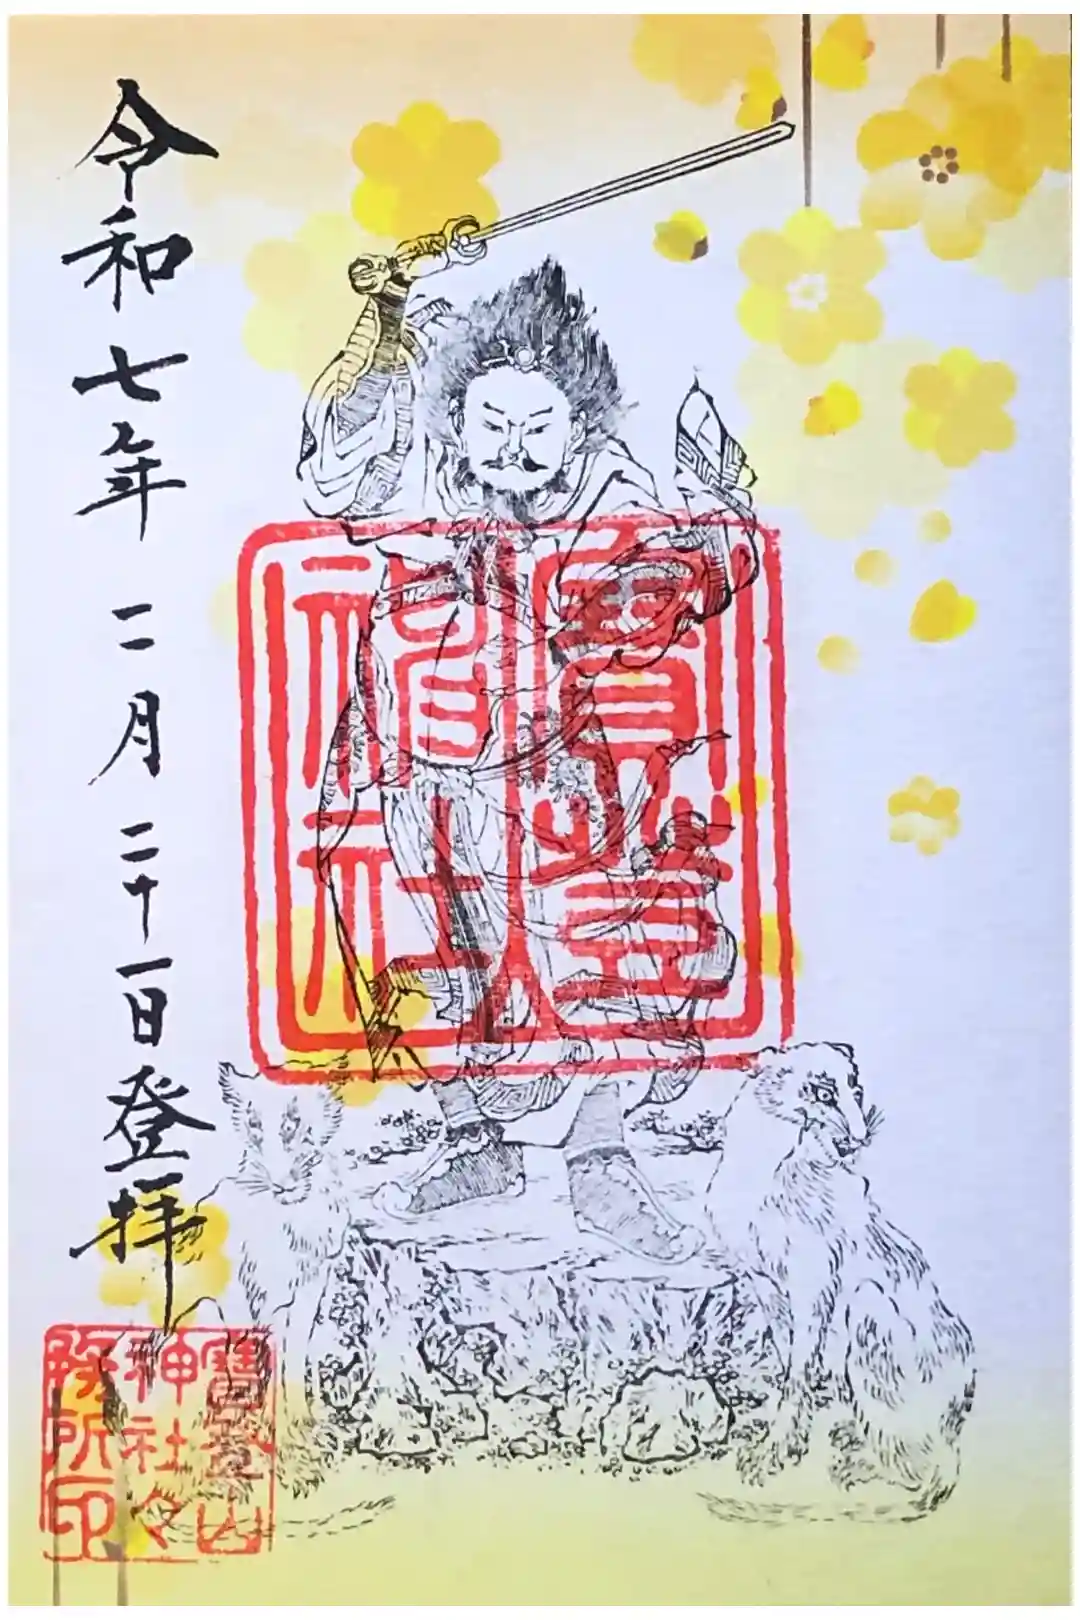 令和七年二月二十一日登拝
寶登山
神社
寶登山
神社々
務所印